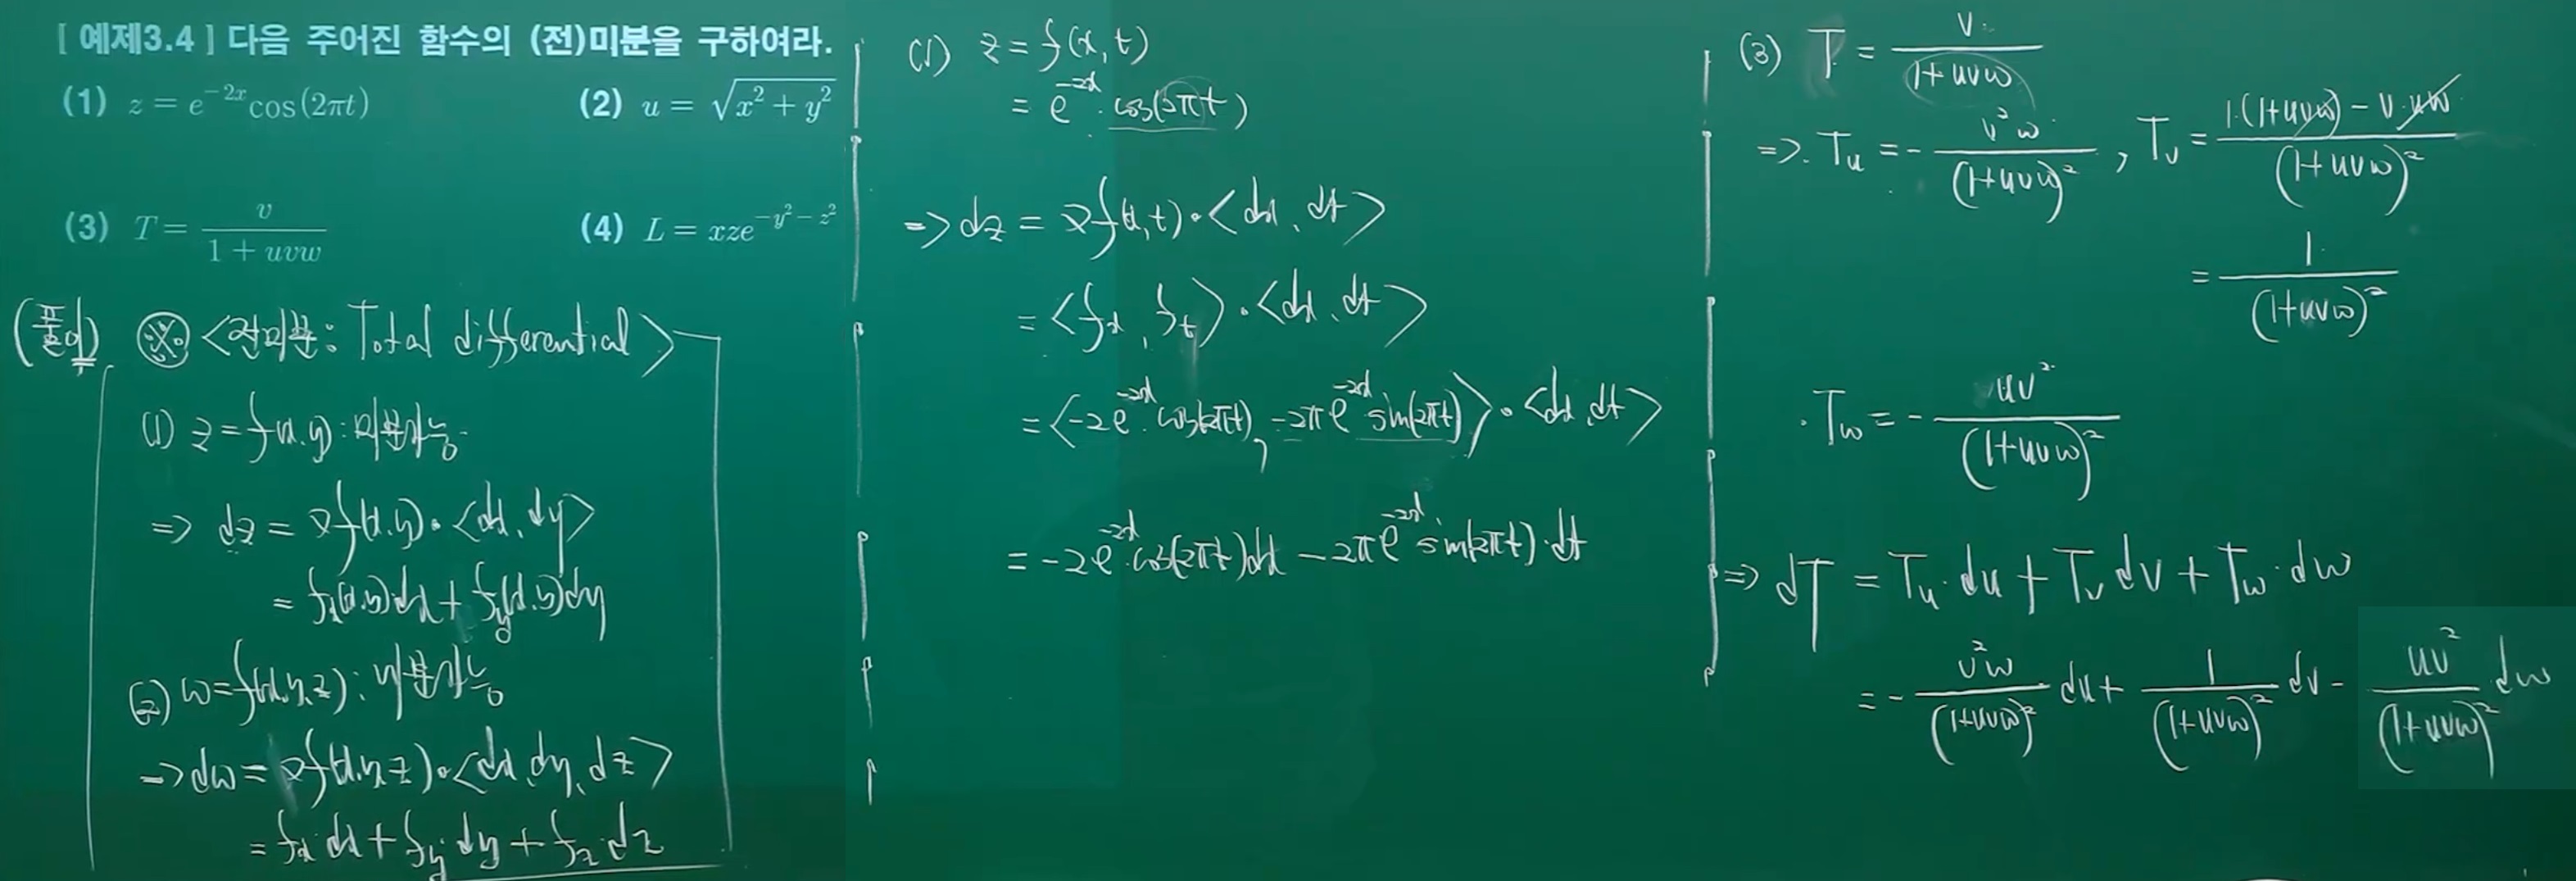 [ 예제3.4 ] 다음 주어진 함수의 (전)미분을 구하여라.
(1) z = e^{-2x} cos(2πt)
(2) u = √(x² + y²)
(3) T = v / (1 + uvw)
(4) L = xze^{-y²-z²}
(풀이) ※ <전미분: Total differential>
(1) z = f(x,y) : 미분가능
=> dz = ∇f(x,y)·<dx, dy>
= f_x(x,y)dx + f_y(x,y)dy
(2) w = f(x,y,z) : 미분가능
-> dw = ∇f(x,y,z)·<dx, dy, dz>
= f_x·dx + f_y·dy + f_z·dz
(1) z = f(x,t)
= e^{-2x}·cos(2πt)
=> dz = ∇f(x,t)·<dx, dt>
= <f_x, f_t>·<dx, dt>
= <-2e^{-2x}·cos(2πt), -2πe^{-2x} sin(2πt)>·<dx, dt>
= -2e^{-2x}·cos(2πt)dx - 2πe^{-2x} sin(2πt)·dt
(3) T = v / (1+uvw)
=> T_u = - v²w / (1+uvw)², T_v = (1·(1+uvw) - v·uw) / (1+uvw)²
= 1 / (1+uvw)²
·T_w = - uv² / (1+uvw)²
=> dT = T_u·du + T_v dv + T_w·dw
= - v²w / (1+uvw)² du + 1 / (1+uvw)² dv - uv² / (1+uvw)² dw